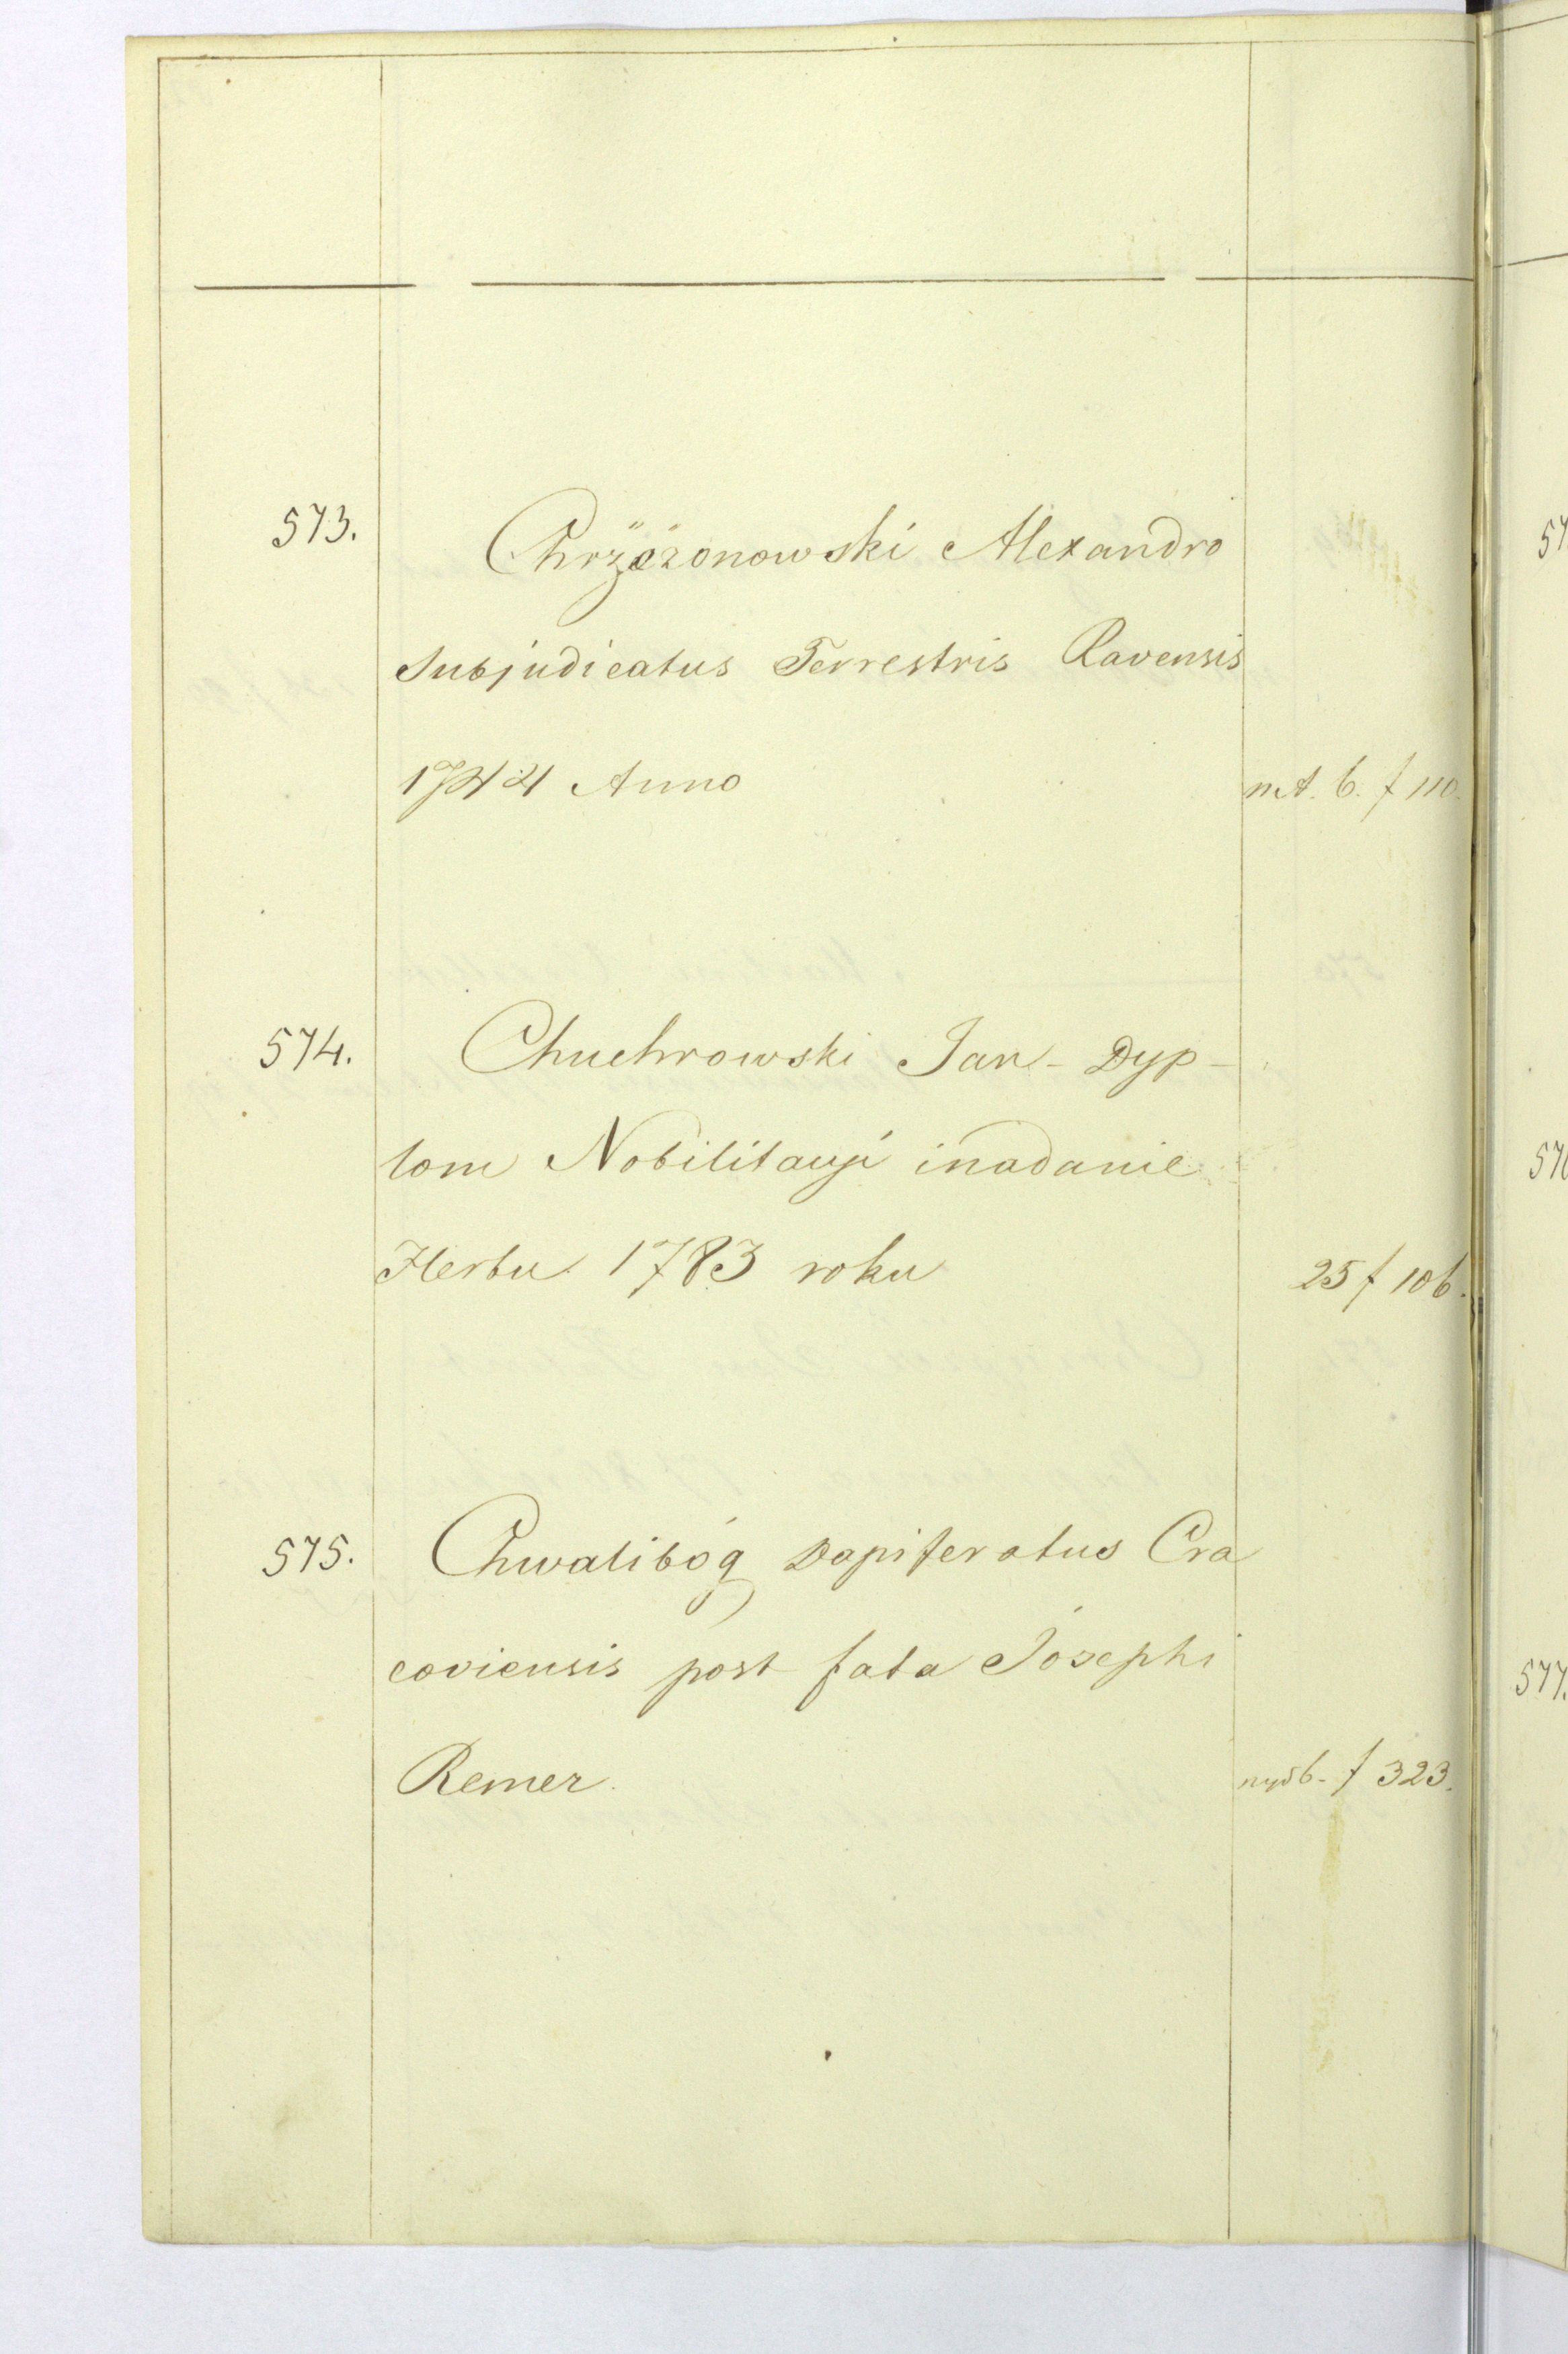 573. Chrząszonowski Alexandro
Subjudicatus Terrestris Ravensis
1744 Anno
574. Chuchrowski Jan - Dyp-
lom Nobilitacyi inadanie
Herbu 1783 roku 25 f 106.
575. Chwalibóg Dapiferatus Cra
coviensis post fata Josephi
Remer. f 323.